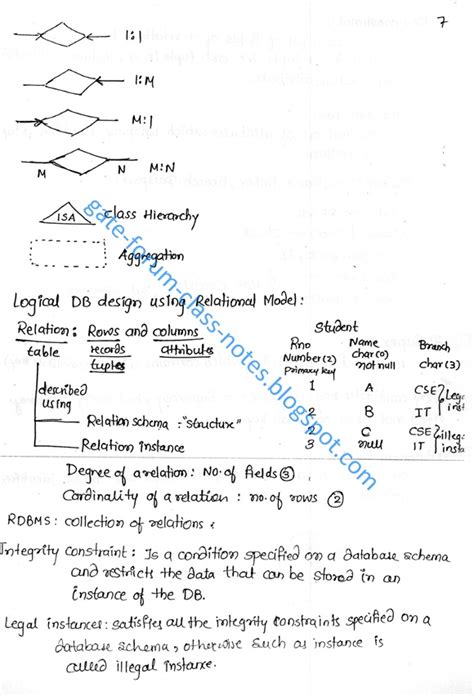 7
1:1
1:M
M:1
M N M:N
ISA Class Hierarchy
Aggregation
gate-forum-class-notes.blogspot.com
Logical DB design using Relational Model:
Relation: Rows and columns
table records attributes
tuples
described
using
Relation schema: "structure"
Relation Instance
Student
Rno Name Branch
Number(2) char(10) char(3)
primary key not null
1 A CSE
2 B IT
2 C CSE
3 null IT
Degree of a relation: No. of fields ③
Cardinality of a relation: no. of rows ②
RDBMS: collection of relations
Integrity constraint: Is a condition specified on a database schema
and restricts the data that can be stored in an
instance of the DB.
Legal instances: satisfies all the integrity constraints specified on a
database schema, otherwise such as instance is
called illegal instance.